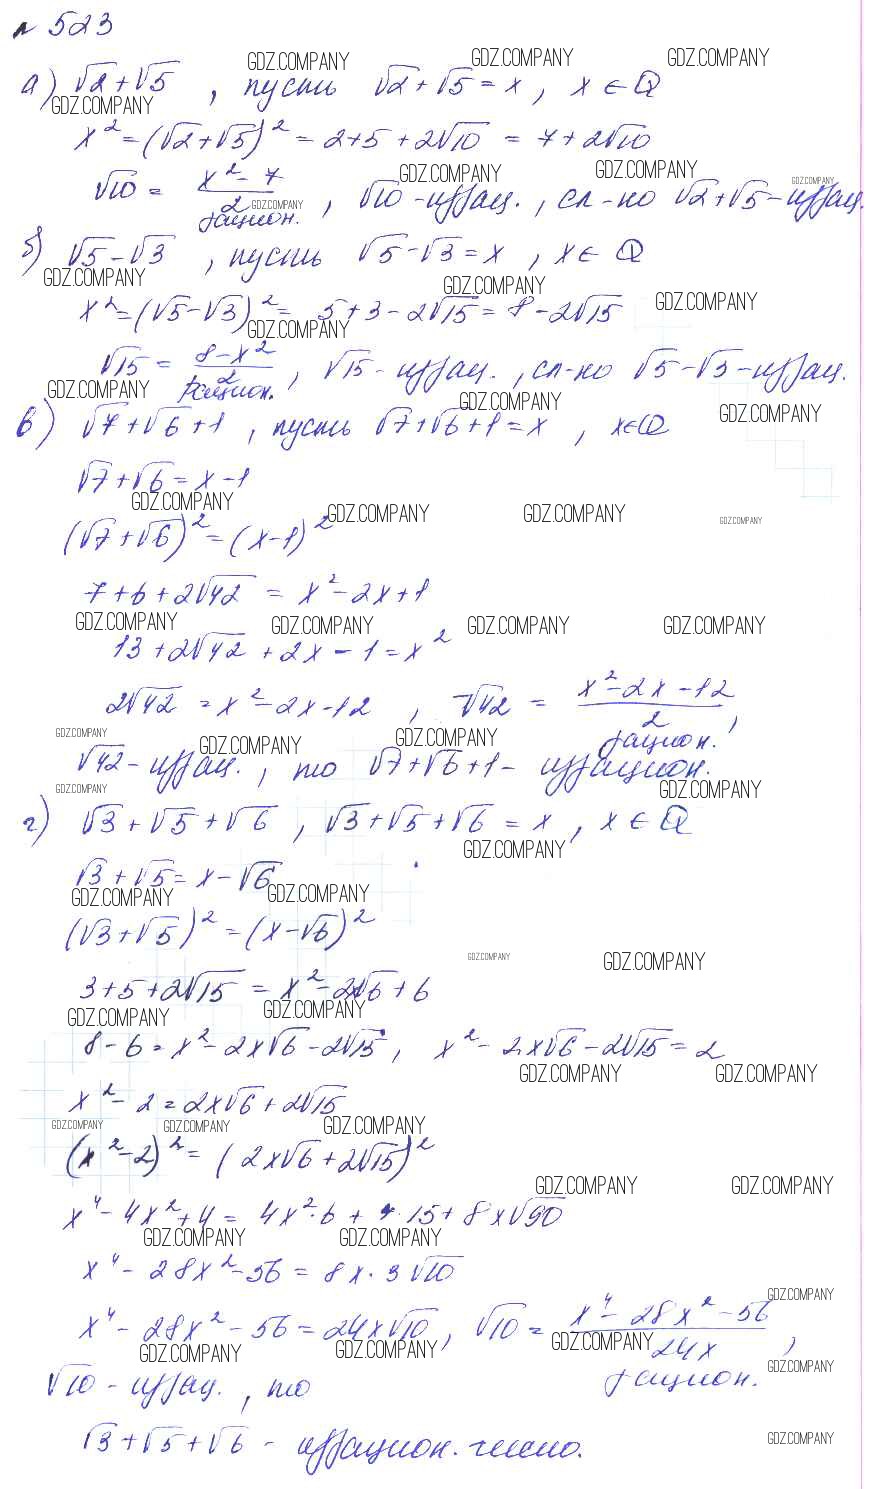 № 523
а) √2 + √5 , пусть √2 + √5 = x , x ∈ Q
x² = (√2 + √5)² = 2+5 + 2√10 = 7 + 2√10
√10 = (x² - 7)/2 рацион. , √10 - иррац. , сл-но √2 + √5 - иррац.
б) √5 - √3 , пусть √5 - √3 = x , x ∈ Q
x² = (√5 - √3)² = 5 + 3 - 2√15 = 8 - 2√15
√15 = (8 - x²)/2 рацион. , √15 - иррац. , сл-но √5 - √3 - иррац.
в) √7 + √6 + 1 , пусть √7 + √6 + 1 = x , x ∈ Q
√7 + √6 = x - 1
(√7 + √6)² = (x - 1)²
7 + 6 + 2√42 = x² - 2x + 1
13 + 2√42 + 2x - 1 = x²
2√42 = x² - 2x - 12 , √42 = (x² - 2x - 12)/2 рацион. ,
√42 - иррац. , то √7 + √6 + 1 - иррацион.
г) √3 + √5 + √6 , √3 + √5 + √6 = x , x ∈ Q
√3 + √5 = x - √6
(√3 + √5)² = (x - √6)²
3 + 5 + 2√15 = x² - 2x√6 + 6
8 - 6 = x² - 2x√6 - 2√15 , x² - 2x√6 - 2√15 = 2
x² - 2 = 2x√6 + 2√15
(x² - 2)² = (2x√6 + 2√15)²
x⁴ - 4x² + 4 = 4x²·6 + 4·15 + 8x√90
x⁴ - 28x² - 56 = 8x·3√10
x⁴ - 28x² - 56 = 24x√10 , √10 = (x⁴ - 28x² - 56)/24x рацион. ,
√10 - иррац. , то
√3 + √5 + √6 - иррацион. число.
GDZ.COMPANY